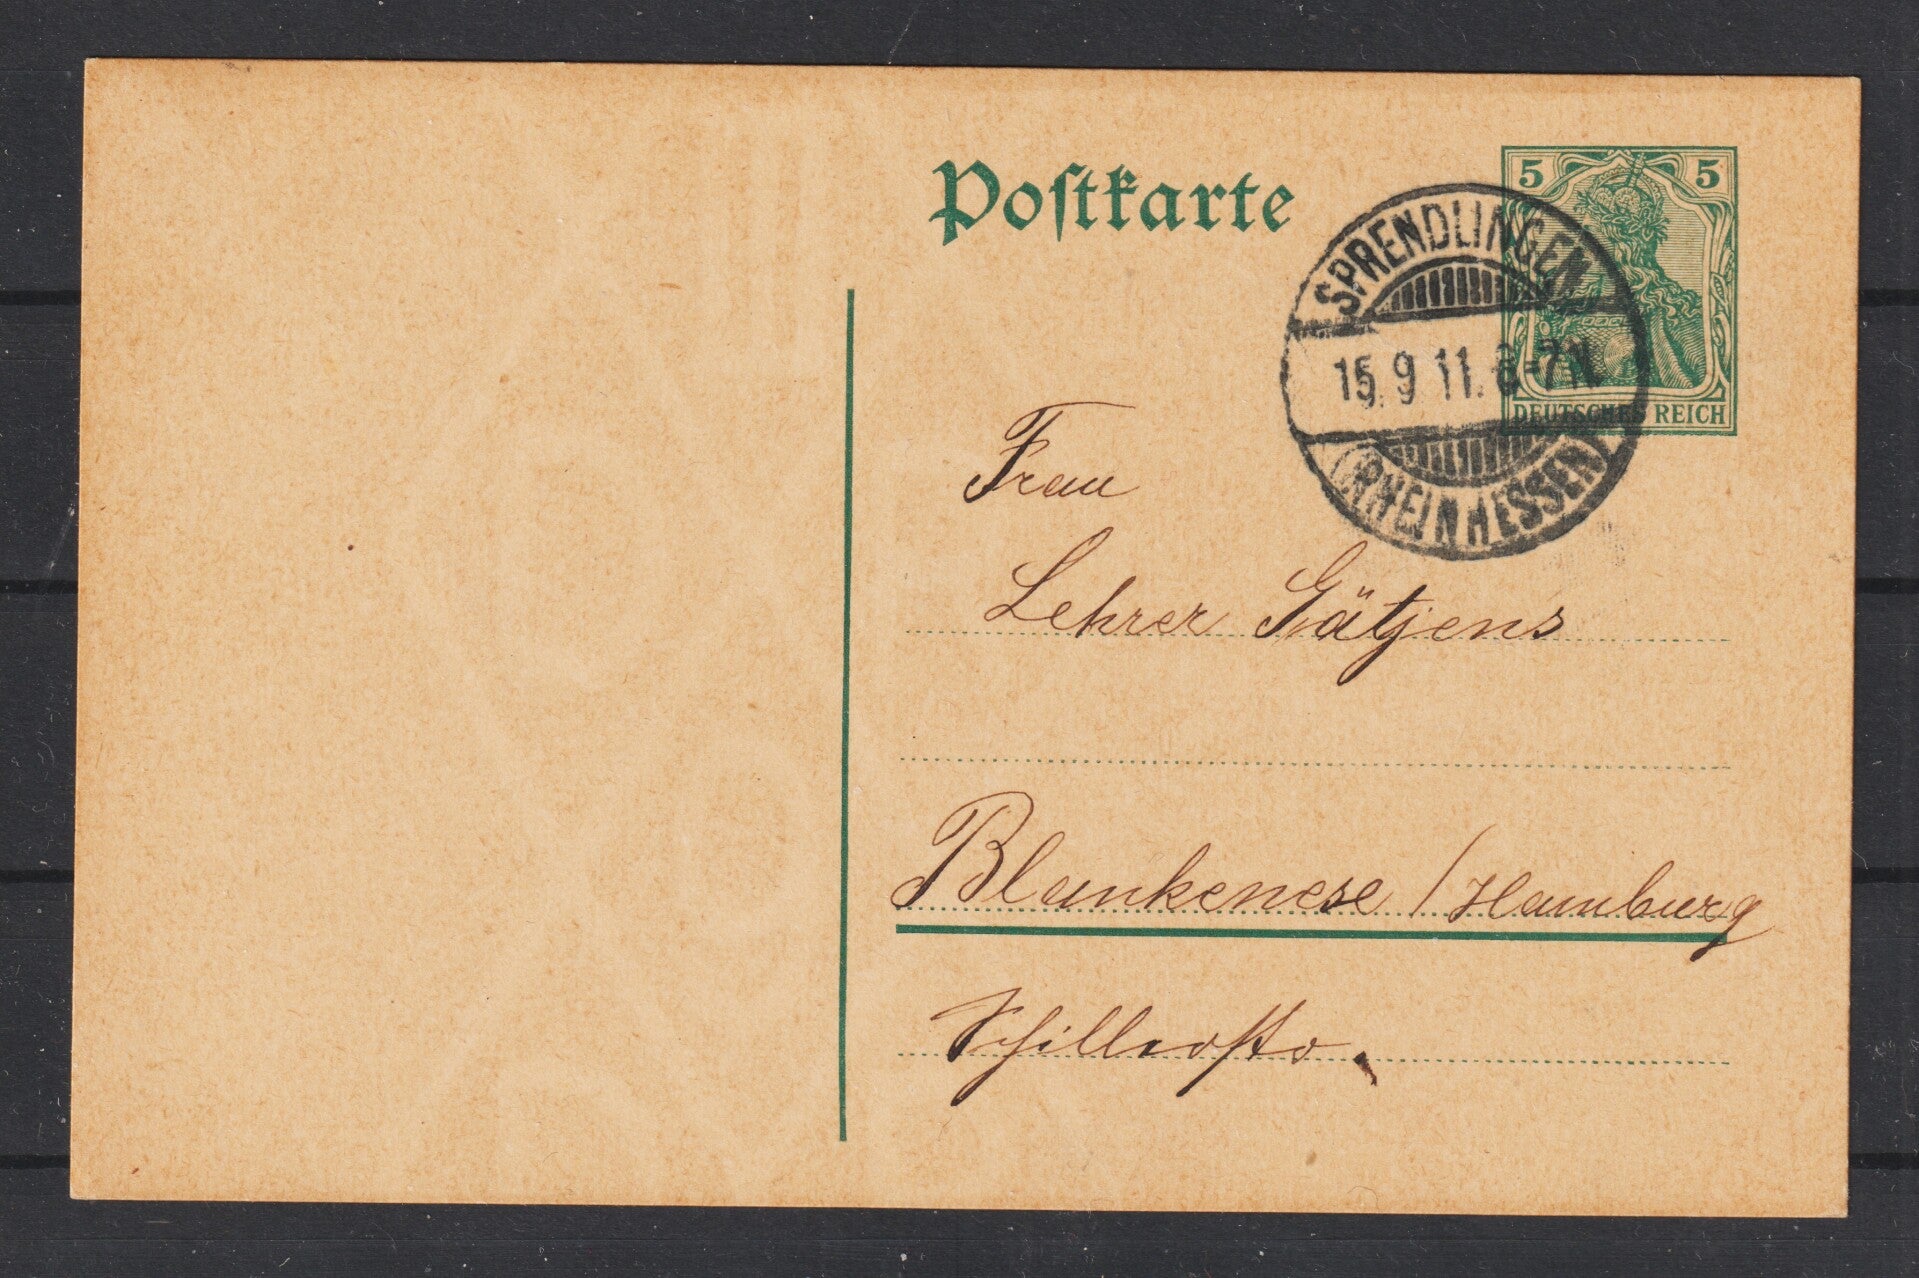 Postkarte
5 5
DEUTSCHES REICH
SPRENDLINGEN
15.9.11. 6-7N.
(RHEINHESSEN)
Frau
Lehrer Gätjens
Blankenese / Hamburg